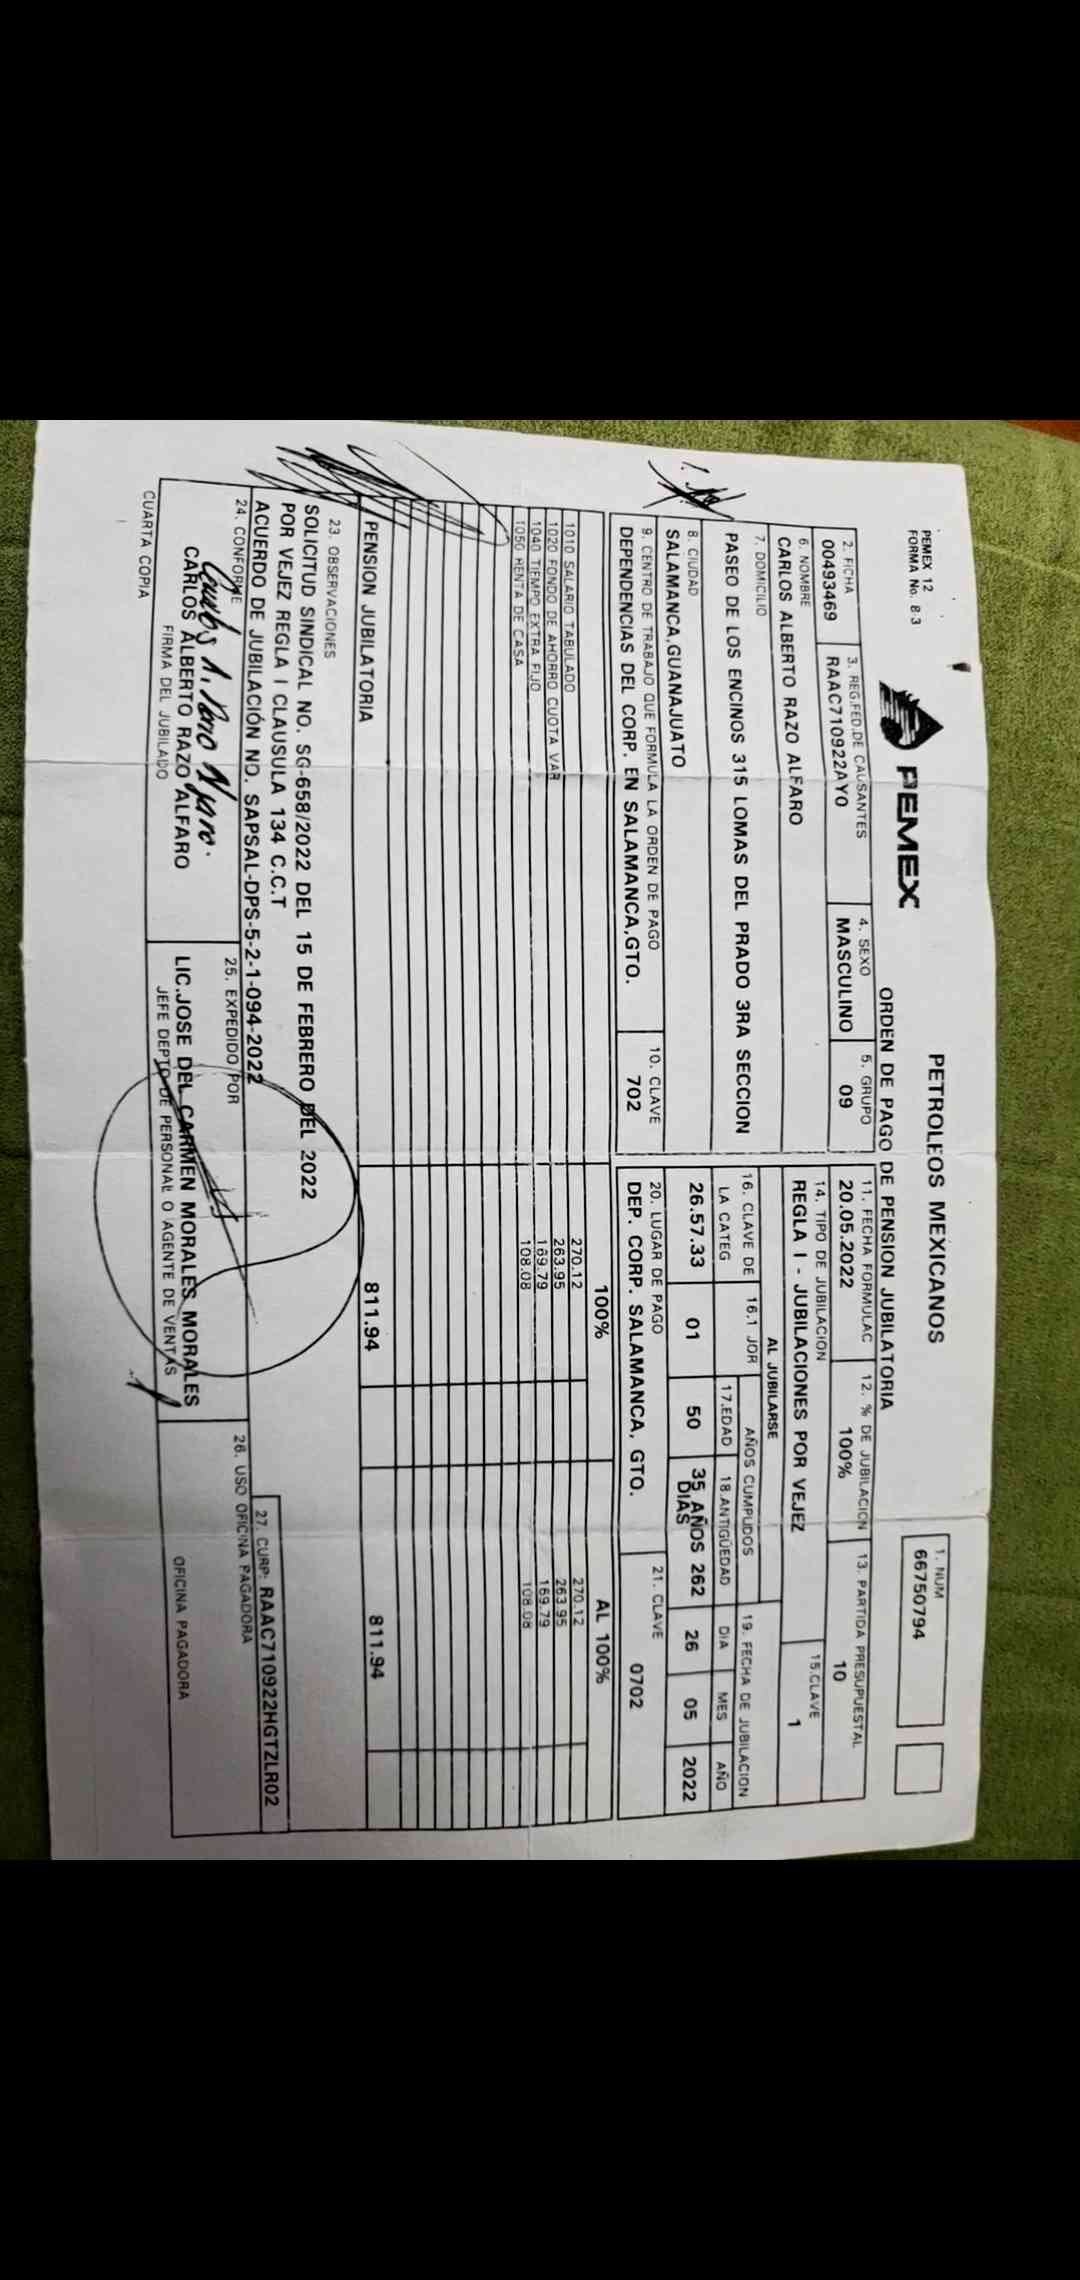 PEMEX 12
FORMA No. 8:3
PEMEX
PETROLEOS MEXICANOS
ORDEN DE PAGO DE PENSION JUBILATORIA
1. NUM
66750794
2. FICHA
00493469
3. REG.FED.DE CAUSANTES
RAAC710922AY0
4. SEXO
MASCULINO
5. GRUPO
09
11. FECHA FORMULAC
20.05.2022
12. % DE JUBILACION
100%
13. PARTIDA PRESUPUESTAL
10
6. NOMBRE
CARLOS ALBERTO RAZO ALFARO
14. TIPO DE JUBILACION
REGLA I - JUBILACIONES POR VEJEZ
15.CLAVE
1
7. DOMICILIO
PASEO DE LOS ENCINOS 315 LOMAS DEL PRADO 3RA SECCION
AL JUBILARSE
16. CLAVE DE
LA CATEG
26.57.33
16.1 JOR
01
AÑOS CUMPLIDOS
17.EDAD
50
18.ANTIGÜEDAD
35 AÑOS 262
DIAS
19. FECHA DE JUBILACION
DIA MES AÑO
26 05 2022
8. CIUDAD
SALAMANCA,GUANAJUATO
9. CENTRO DE TRABAJO QUE FORMULA LA ORDEN DE PAGO
DEPENDENCIAS DEL CORP. EN SALAMANCA,GTO.
10. CLAVE
702
20. LUGAR DE PAGO
DEP. CORP. SALAMANCA, GTO.
21. CLAVE
0702
100% AL 100%
1010 SALARIO TABULADO 270.12 270.12
1020 FONDO DE AHORRO CUOTA VAR 263.95 263.95
1040 TIEMPO EXTRA FIJO 169.79 169.79
1050 RENTA DE CASA 108.08 108.08
PENSION JUBILATORIA 811.94 811.94
23. OBSERVACIONES
SOLICITUD SINDICAL NO. SG-658/2022 DEL 15 DE FEBRERO DEL 2022
POR VEJEZ REGLA I CLAUSULA 134 C.C.T
ACUERDO DE JUBILACIÓN NO. SAPSAL-DPS-5-2-1-094-2022
27. CURP: RAAC710922HGTZLR02
24. CONFORME
CARLOS ALBERTO RAZO ALFARO
FIRMA DEL JUBILADO
25. EXPEDIDO POR
LIC.JOSE DEL CARMEN MORALES MORALES
JEFE DEPTO DE PERSONAL O AGENTE DE VENTAS
26. USO OFICINA PAGADORA
OFICINA PAGADORA
CUARTA COPIA